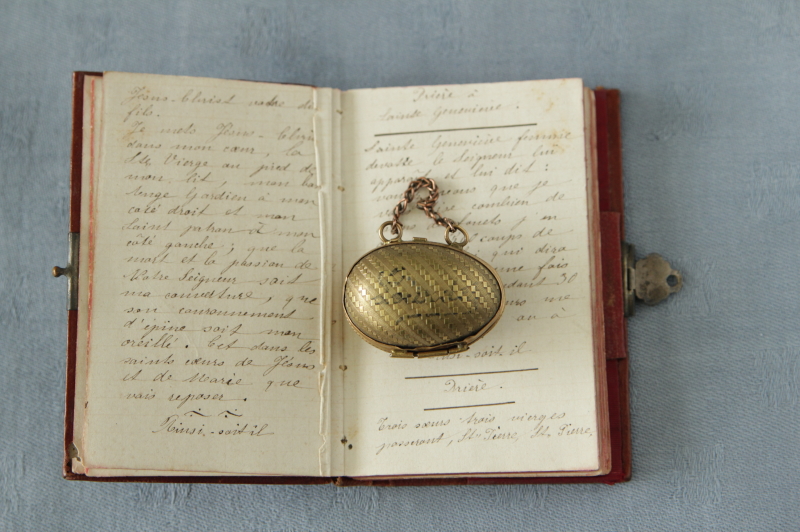 Jésus-Christ votre
fils.
Je mets Jésus-Chris
dans mon cœur, la
Ste Vierge au pied de
mon lit, mon bo
Ange Gardien à mon
côté droit et mon
Saint patron à mon
côté gauche; que la
mort et la passion de
Notre Seigneur soit
ma couverture, que
son couronnement
d'épine soit mon
oreillé. Cet dans les
saints cœurs de Jésus
et de Marie que
vais reposer.
Ainsi-soit il
Prière à
Sainte Geneviève.
Sainte Geneviève
devatte le Seigneur lui
apparût et lui dit:
que je
combien de
coups de
qui dira
une fois
30
me
à
soit il
Prière.
Trois sœurs trois vierges
passerent, St Pierre, St Pierre,